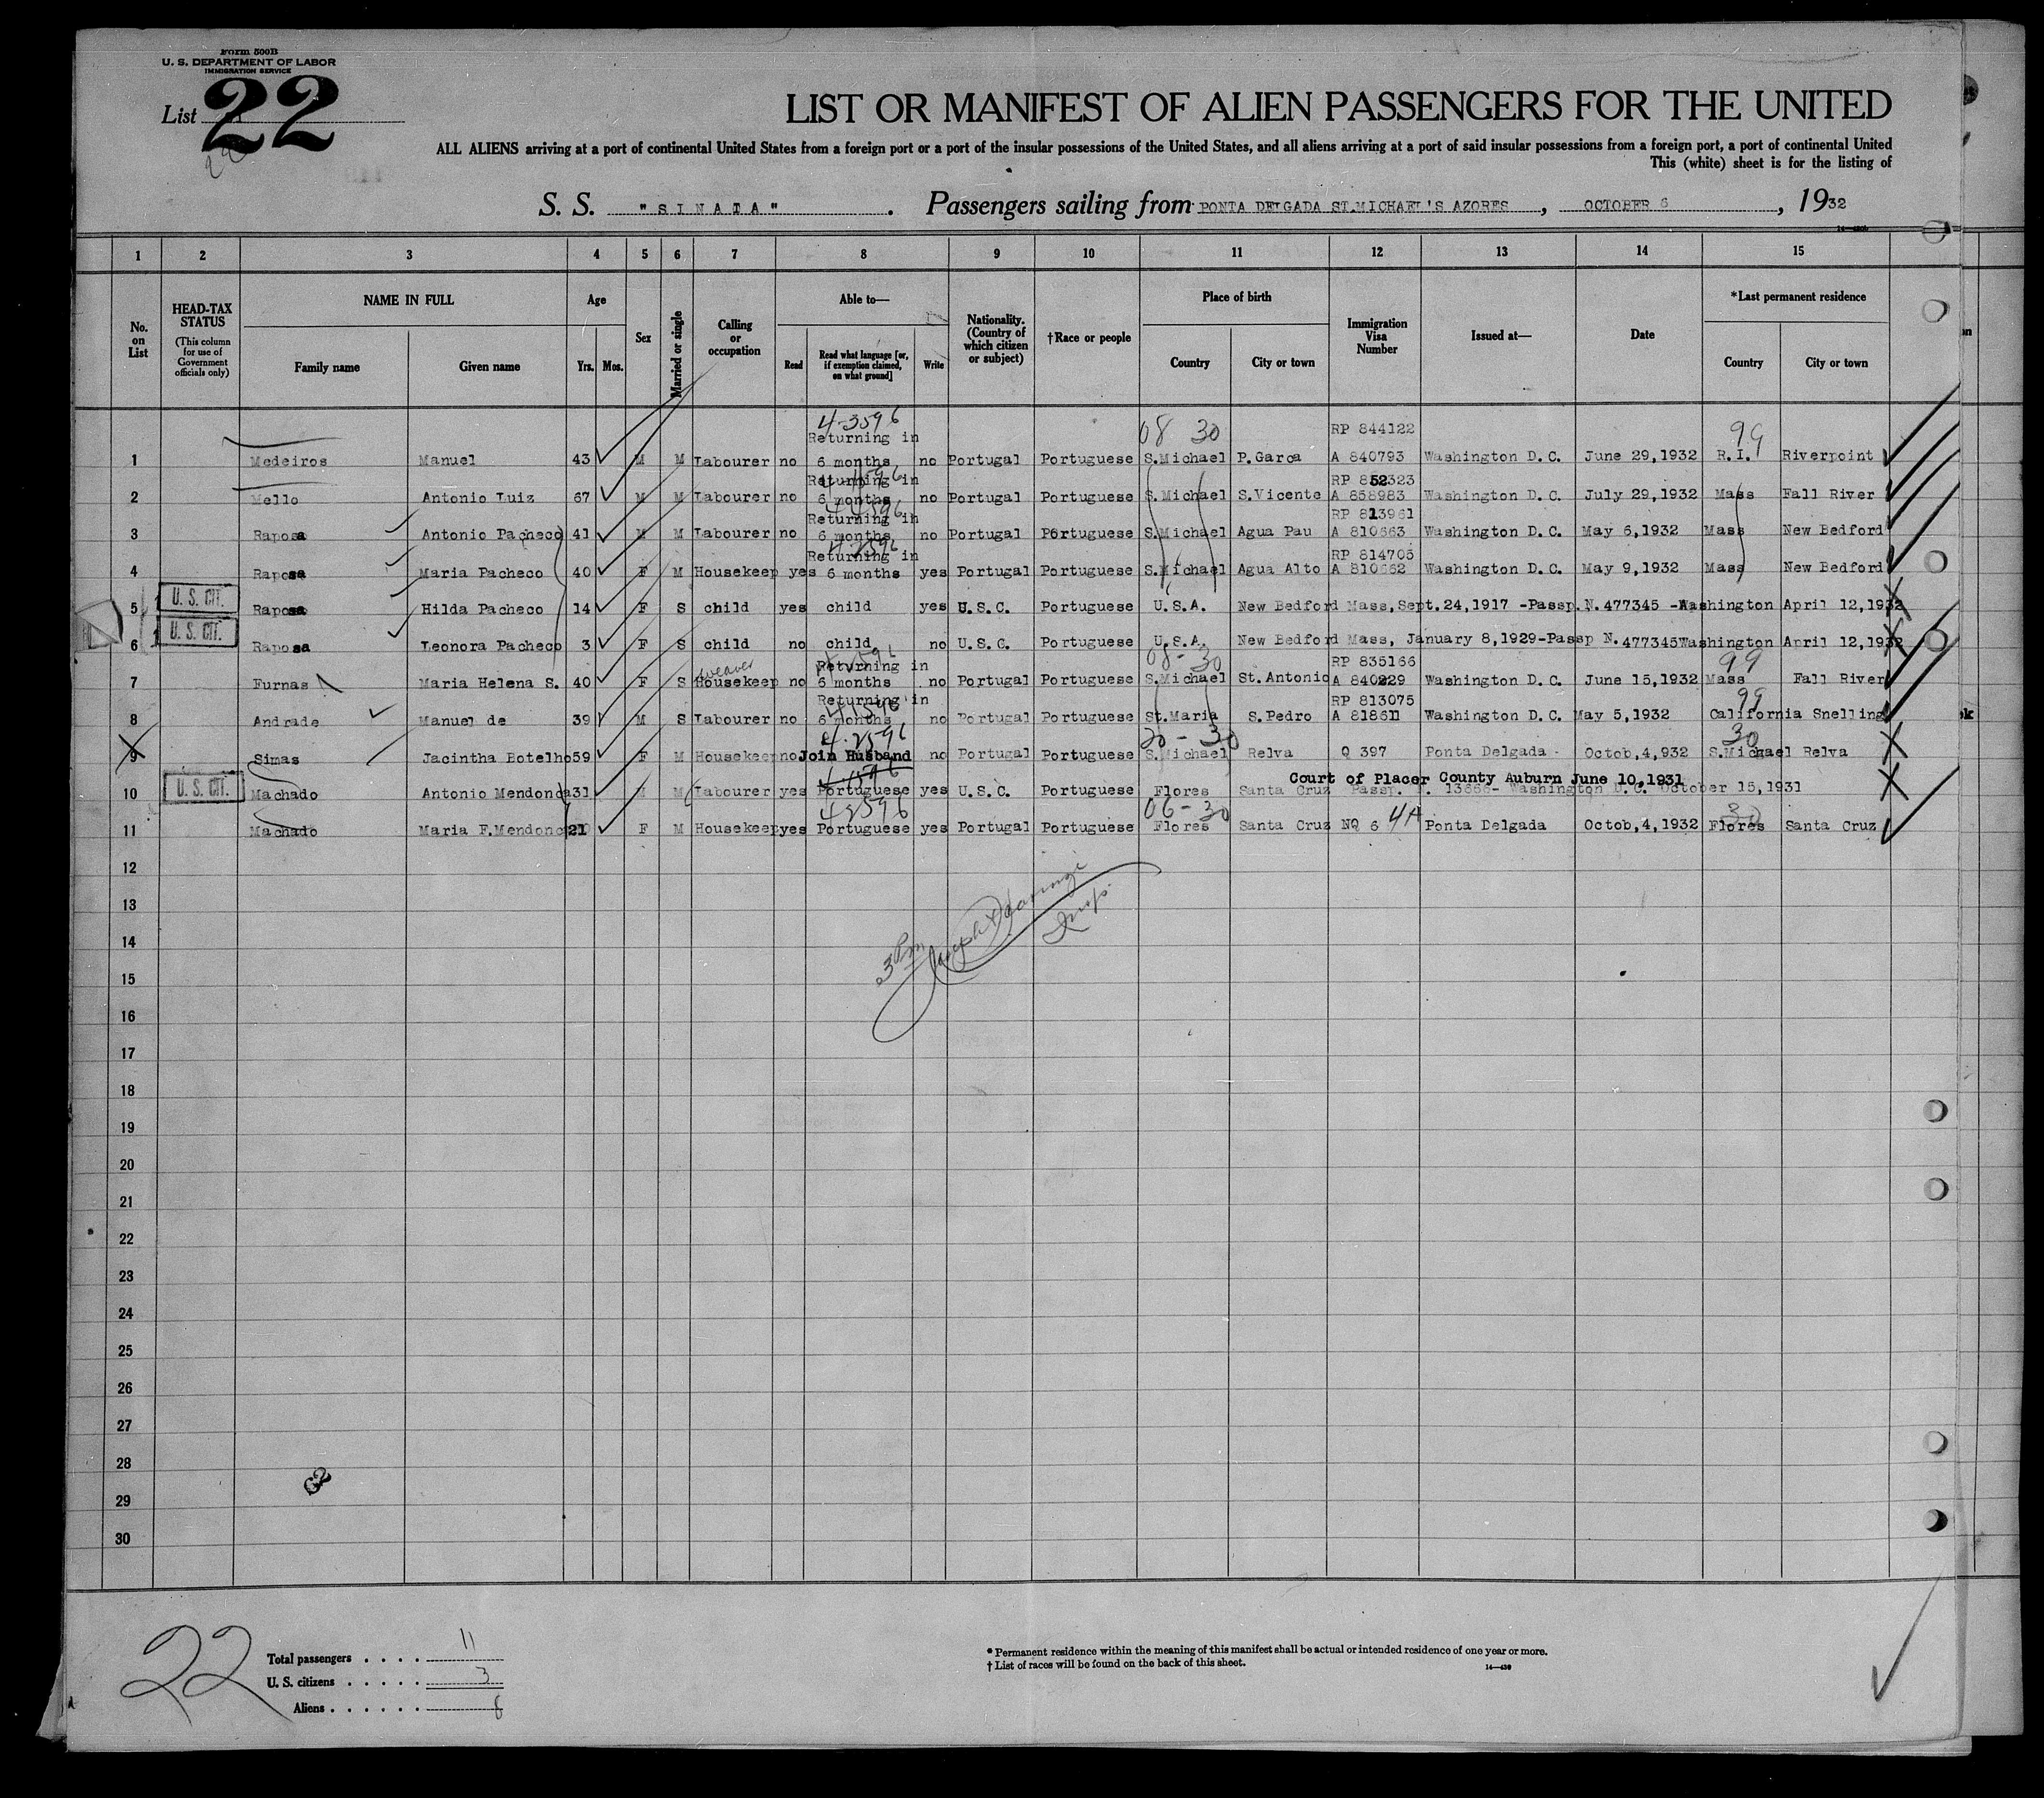 Form 500B
U. S. DEPARTMENT OF LABOR
IMMIGRATION SERVICE
List 22
LIST OR MANIFEST OF ALIEN PASSENGERS FOR THE UNITED
ALL ALIENS arriving at a port of continental United States from a foreign port or a port of the insular possessions of the United States, and all aliens arriving at a port of said insular possessions from a foreign port, a port of continental United
This (white) sheet is for the listing of
S. S. "SINATA". Passengers sailing from PONTA DELGADA ST.MICHAEL'S AZORES, OCTOBER 6, 1932
1 2 3 4 5 6 7 8 9 10 11 12 13 14 15
No. on List
HEAD-TAX STATUS
(This column for use of Government officials only)
NAME IN FULL
Family name Given name
Age
Yrs. Mos.
Sex
Married or single
Calling or occupation
Able to—
Read
Read what language [or, if exemption claimed, on what ground]
Write
Nationality. (Country of which citizen or subject)
†Race or people
Place of birth
Country City or town
Immigration Visa Number
Issued at—
Date
*Last permanent residence
Country City or town
4-3596 08 30 RP 844122 99
Returning in
1 Medeiros Manuel 43 M M Labourer no 6 months no Portugal Portuguese S.Michael P.Garca A 840793 Washington D.C. June 29,1932 R.I. Riverpoint
Returning in RP 852323
2 Mello Antonio Luiz 67 M M Labourer no 6 months no Portugal Portuguese S.Michael S.Vicente A 858983 Washington D.C. July 29,1932 Mass Fall River
Returning in RP 813961
3 Raposa Antonio Pacheco 41 M M Labourer no 6 months no Portugal Portuguese S.Michael Agua Pau A 810663 Washington D.C. May 6,1932 Mass New Bedford
Returning in RP 814705
4 Raposa Maria Pacheco 40 F M Housekeep yes 6 months yes Portugal Portuguese S.Michael Agua Alto A 810662 Washington D.C. May 9,1932 Mass New Bedford
5 U. S. CIT. Raposa Hilda Pacheco 14 F S child yes child yes U.S.C. Portuguese U.S.A. New Bedford Mass,Sept.24,1917 -Passp.N.477345 -Washington April 12,1932
6 U. S. CIT. Raposa Leonora Pacheco 3 F S child no child no U.S.C. Portuguese U.S.A. New Bedford Mass, January 8,1929-Passp N.477345Washington April 12,1932
weaver Returning in 08-30 RP 835166 99
7 Furnas Maria Helena S. 40 F S Housekeep no 6 months no Portugal Portuguese S.Michael St.Antonio A 840229 Washington D.C. June 15,1932 Mass Fall River
Returning in RP 813075 99
8 Andrade Manuel de 39 M S Labourer no 6 months no Portugal Portuguese St.Maria S.Pedro A 818611 Washington D.C. May 5,1932 California Snelling
4-2596 20-30 30
9 Simas Jacintha Botelho 59 F M Housekeep no Join Husband no Portugal Portuguese S.Michael Relva Q 397 Ponta Delgada Octob,4,932 S.Michael Relva
Court of Placer County Auburn June 10,1931
10 U. S. CIT. Machado Antonio Mendonca 31 M M Labourer yes Portuguese yes U.S.C. Portuguese Flores Santa Cruz Passp. N. 13656- Washington D.C. October 15,1931
42596 06-30 30
11 Machado Maria F.Mendonca 21 F M Housekeep yes Portuguese yes Portugal Portuguese Flores Santa Cruz NQ 6 4A Ponta Delgada Octob,4,1932 Flores Santa Cruz
12
13
14
3 Pm Insp.
15
16
17
18
19
20
21
22
23
24
25
26
27
28
62
29
30
22
Total passengers . . . . 11
U. S. citizens . . . . . 3
Aliens . . . . . . 8
* Permanent residence within the meaning of this manifest shall be actual or intended residence of one year or more.
† List of races will be found on the back of this sheet.
14—430